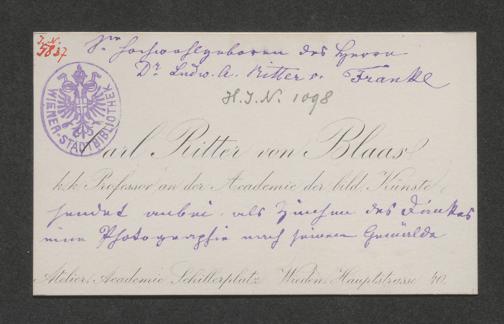 J. N.
5837
Sr Hochwohlgeboren des Herrn
Dr Ludw. A. Ritter v. Frankl
H. J. N. 1098
WIENER-STADTBIBLIOTHEK
Carl Ritter von Blaas
k.k. Professor an der Academie der bild. Künste
sendet anbei als Zeichen des Dankes
eine Photographie nach seinem Gemälde
Atelier: Academie Schillerplatz. Wieden, Hauptstrasse 40.